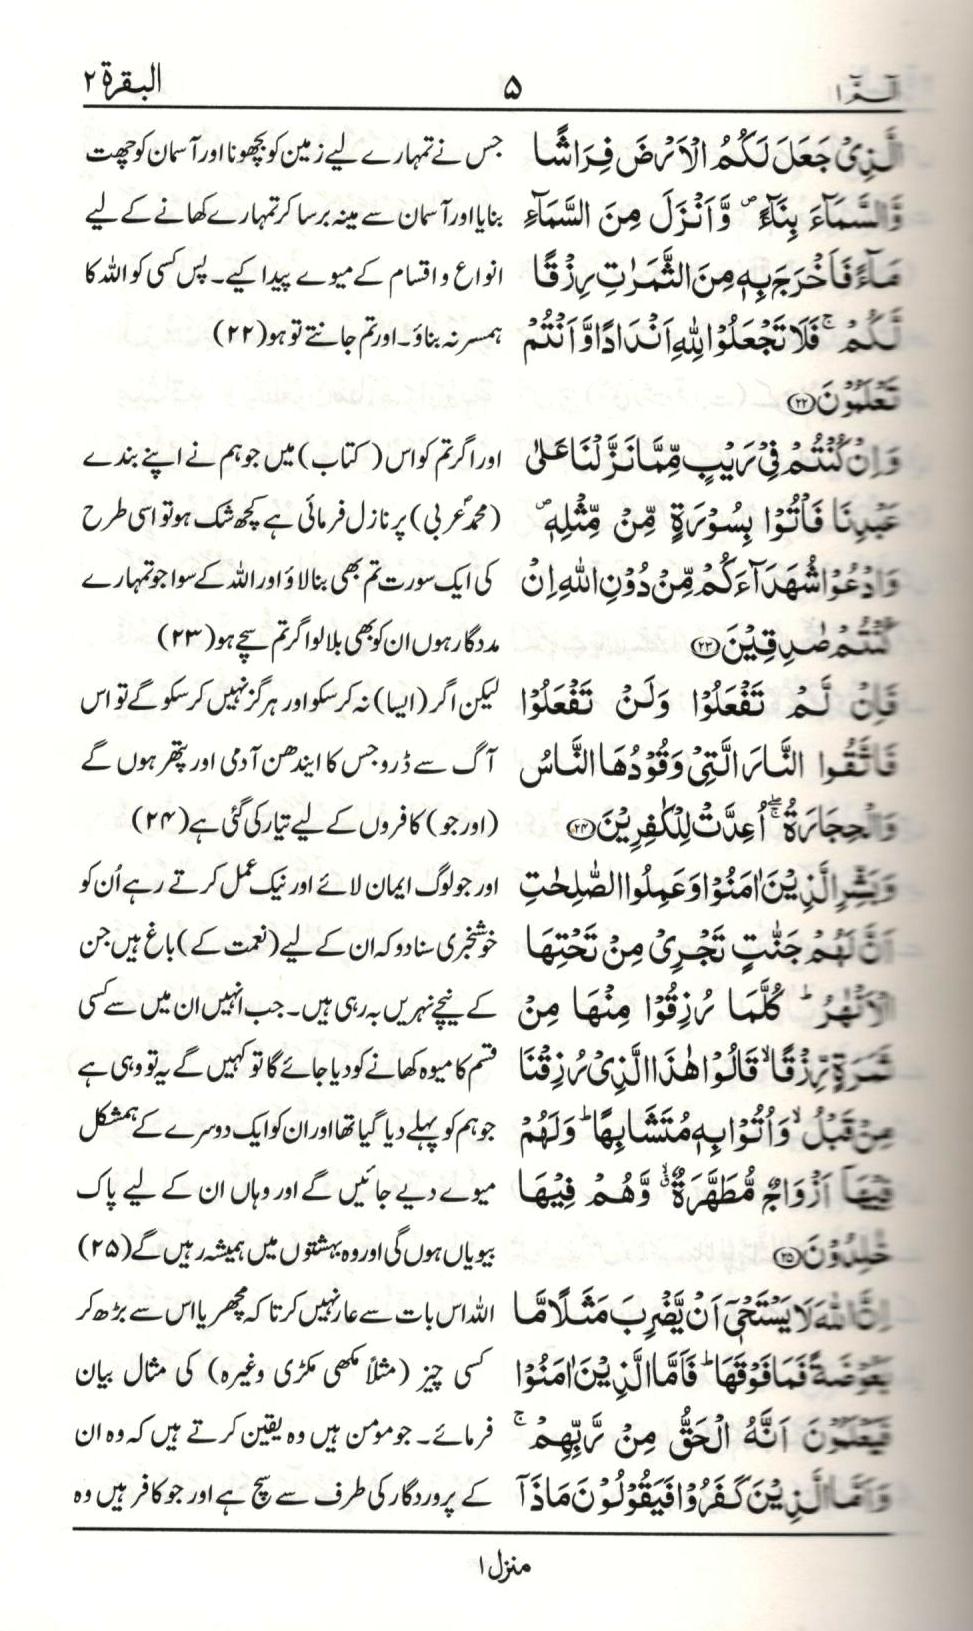 الٓمّٓ ۱ ۵ البقرۃ ۲
الَّذِیْ جَعَلَ لَكُمُ الْاَرْضَ فِرَاشًا جس نے تمہارے لیے زمین کو بچھونا اور آسمان کو چھت
وَّالسَّمَآءَ بِنَآءً ۪ وَّاَنْزَلَ مِنَ السَّمَآءِ بنایا اور آسمان سے مینہ برسا کر تمہارے کھانے کے لیے
مَآءً فَاَخْرَجَ بِهٖ مِنَ الثَّمَرٰتِ رِزْقًا انواع و اقسام کے میوے پیدا کیے۔ پس کسی کو اللہ کا
لَّكُمْ ۚ فَلَا تَجْعَلُوْا لِلّٰهِ اَنْدَادًا وَّاَنْتُمْ ہمسر نہ بناؤ۔ اور تم جانتے تو ہو (۲۲)
تَعْلَمُوْنَ ﴿۲۲﴾
وَاِنْ كُنْتُمْ فِیْ رَیْبٍ مِّمَّا نَزَّلْنَا عَلٰی اور اگر تم کو اس (کتاب) میں جو ہم نے اپنے بندے
عَبْدِنَا فَاْتُوْا بِسُوْرَةٍ مِّنْ مِّثْلِهٖ ۪ (محمدؐ عربی) پر نازل فرمائی ہے کچھ شک ہو تو اسی طرح
وَادْعُوْا شُهَدَآءَكُمْ مِّنْ دُوْنِ اللّٰهِ اِنْ کی ایک سورت تم بھی بنا لاؤ اور اللہ کے سوا جو تمہارے
كُنْتُمْ صٰدِقِیْنَ ﴿۲۳﴾ مددگار ہوں ان کو بھی بلا لو اگر تم سچے ہو (۲۳)
فَاِنْ لَّمْ تَفْعَلُوْا وَلَنْ تَفْعَلُوْا لیکن اگر (ایسا) نہ کر سکو اور ہرگز نہیں کر سکو گے تو اس
فَاتَّقُوا النَّارَ الَّتِیْ وَقُوْدُهَا النَّاسُ آگ سے ڈرو جس کا ایندھن آدمی اور پتھر ہوں گے
وَالْحِجَارَةُ ۖۚ اُعِدَّتْ لِلْكٰفِرِیْنَ ﴿۲۴﴾ (اور جو) کافروں کے لیے تیار کی گئی ہے (۲۴)
وَبَشِّرِ الَّذِیْنَ اٰمَنُوْا وَعَمِلُوا الصّٰلِحٰتِ اور جو لوگ ایمان لائے اور نیک عمل کرتے رہے اُن کو
اَنَّ لَهُمْ جَنّٰتٍ تَجْرِیْ مِنْ تَحْتِهَا خوشخبری سنا دو کہ ان کے لیے (نعمت کے) باغ ہیں جن
الْاَنْهٰرُ ؕ كُلَّمَا رُزِقُوْا مِنْهَا مِنْ کے نیچے نہریں بہ رہی ہیں۔ جب انہیں ان میں سے کسی
ثَمَرَةٍ رِّزْقًا ۙ قَالُوْا هٰذَا الَّذِیْ رُزِقْنَا قسم کا میوہ کھانے کو دیا جائے گا تو کہیں گے یہ تو وہی ہے
مِنْ قَبْلُ ۙ وَاُتُوْا بِهٖ مُتَشَابِهًا ؕ وَلَهُمْ جو ہم کو پہلے دیا گیا تھا اور ان کو ایک دوسرے کے ہمشکل
فِیْهَآ اَزْوَاجٌ مُّطَهَّرَةٌ ۙۗ وَّهُمْ فِیْهَا میوے دیے جائیں گے اور وہاں ان کے لیے پاک
خٰلِدُوْنَ ﴿۲۵﴾ بیویاں ہوں گی اور وہ بہشتوں میں ہمیشہ رہیں گے (۲۵)
اِنَّ اللّٰهَ لَا یَسْتَحْیٖٓ اَنْ یَّضْرِبَ مَثَلًا مَّا اللہ اس بات سے عار نہیں کرتا کہ مچھر یا اس سے بڑھ کر
بَعُوْضَةً فَمَا فَوْقَهَا ؕ فَاَمَّا الَّذِیْنَ اٰمَنُوْا کسی چیز (مثلاً مکھی مکڑی وغیرہ) کی مثال بیان
فَیَعْلَمُوْنَ اَنَّهُ الْحَقُّ مِنْ رَّبِّهِمْ ۚ فرمائے۔ جو مومن ہیں وہ یقین کرتے ہیں کہ وہ ان
وَاَمَّا الَّذِیْنَ كَفَرُوْا فَیَقُوْلُوْنَ مَاذَآ کے پروردگار کی طرف سے سچ ہے اور جو کافر ہیں وہ
منزل ۱